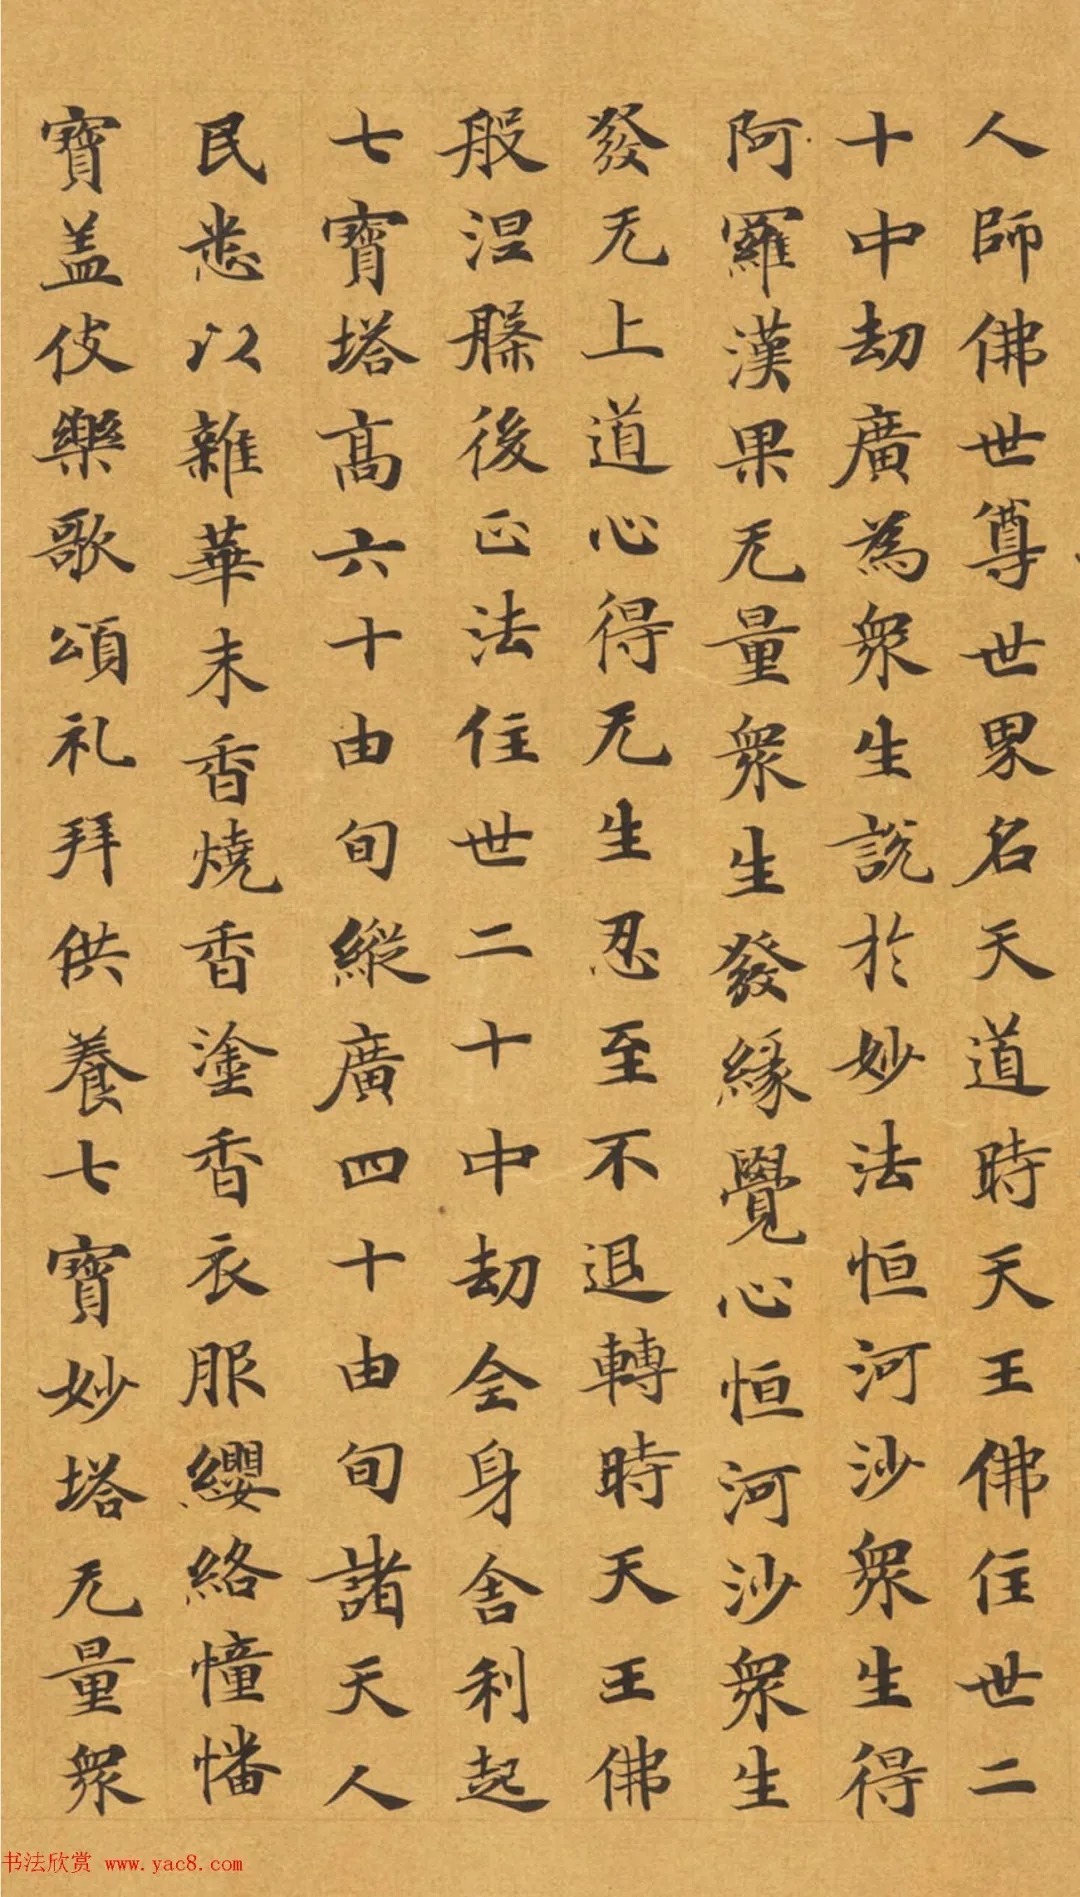 人師佛世尊世界名天道時天王佛住世二
十中劫廣為眾生說於妙法恒河沙眾生得
阿羅漢果无量眾生發緣覺心恒河沙眾生
發无上道心得无生忍至不退轉時天王佛
般涅槃後正法住世二十中劫全身舍利起
七寶塔高六十由旬縱廣四十由旬諸天人
民悉以雜華末香燒香塗香衣服纓絡幢幡
寶盖伎樂歌頌礼拜供養七寶妙塔无量眾
书法欣赏 www.yac8.com